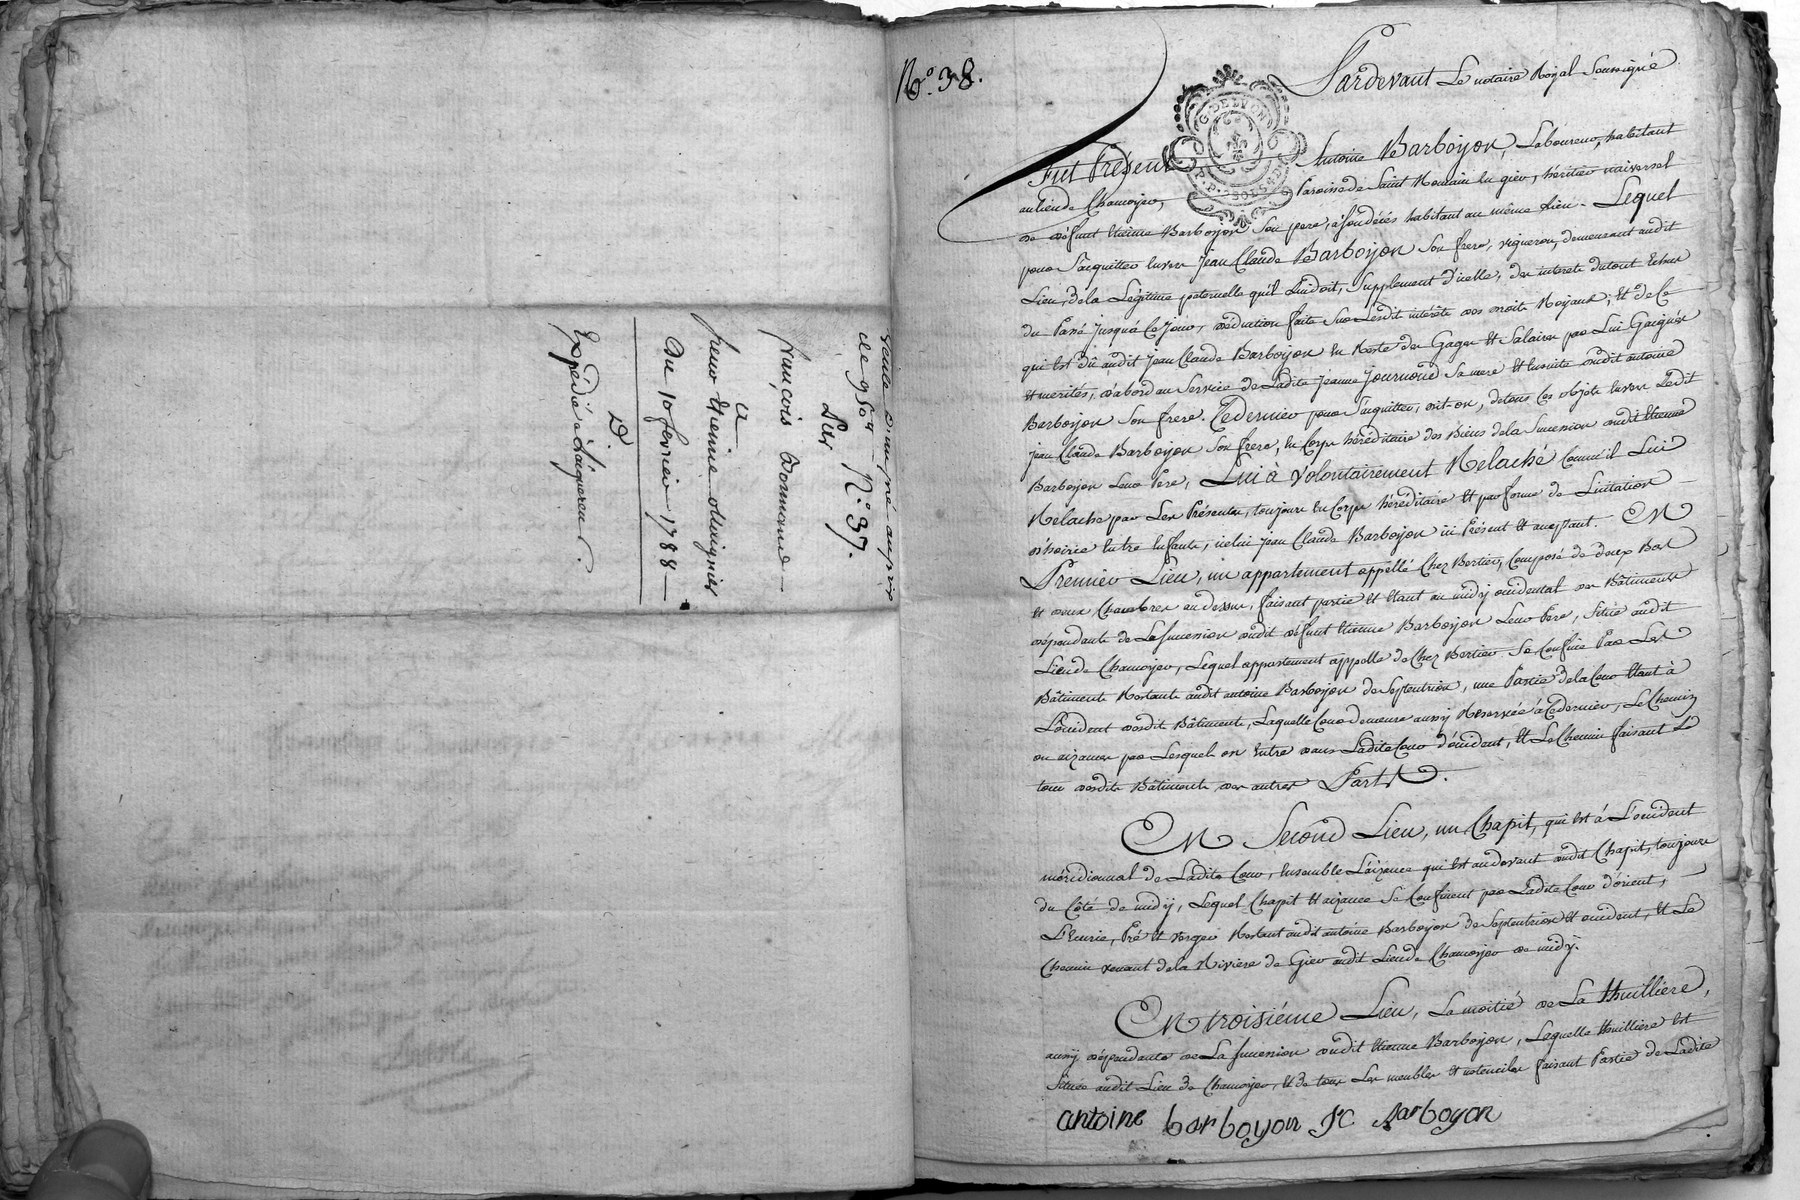 vente d'un pré au prix
de 950 ₶ N.° 37.
Par
françois Bonnand
a
sieur Etienne
Du 10 fevrier 1788
D
Expédié à l'aquereur.
N.° 38.
Pardevant Le notaire Royal Soussigné
G. DE LYON
Fut Présent Antoine Barboyon, Laboureur, habitant
au lieu de Chamoyer, Paroisse de Saint Romain en gier, héritier universel
de défunt Etienne Barboyon Son pere, à son décés habitant au même Lieu. Lequel
pour S'acquitter envers Jean Claude Barboyon Son frere, vigneron, demeurant audit
Lieu, de la Légitime paternelle qu'il Lui doit, Supplement d'icelle, des interets du tout Echus
du Passé jusqu'a Ce Jour, déduction faite Sur Lesdit intérêts des droits Royaux; Et de Ce
qui Est dû audit Jean Claude Barboyon En Reste des Gages Et Salaires par Lui Gaignés
Et merités, d'abord au Service de Ladite Jeanne Journoud Sa mere Et Ensuite dudit antoine
Barboyon Son frere. Ce dernier pour S'acquitter, dit-on, de tous Ces objets Envers Ledit
Jean Claude Barboyon Son frere, En Corps héréditaire des Biens de la Succession dudit Etienne
Barboyon Leur Pere, Lui à Volontairement Relaché Comme il Lui
Relache par Les Présentes, toujours En Corps héréditaire Et par forme de Licitation
d'hoirie Entre Enfants, icelui Jean Claude Barboyon ici Présent Et acceptant. En
Premier Lieu, un appartement appellé Chez Bertier, Composé de deux Bas
Et deux Chambres au dessus, faisant partie Et Etant au midy occidental des Bâtiments
dépendants de La Succession dudit défunt Etienne Barboyon Leur Pere, Situé audit
Lieu de Chamoyer, Lequel appartement appellé de Chez Bertier Se Confine Par Les
Bâtiments Restants audit antoine Barboyon de Septentrion, une Partie de la Cour Etant à
L'occident desdits Bâtiments, Laquelle Cour demeure aussy Reservée à Ce dernier, Le Chemin
ou aizances par Lesquels on Entre dans Ladite Cour d'occident, Et Le Chemin faisant Le
tour desdits Bâtiments des autres Parts.
En Second Lieu, un Chapit, qui Est à L'occident
méridionnal de Ladite Cour, Ensemble L'aizance qui Est au devant dudit Chapit, toujours
du Côté de midy, Lequel Chapit Et aizance Se Confinent par Ladite Cour d'orient,
L'Ecurie, Pré Et verger Restant audit antoine Barboyon de Septentrion Et occident, Et Le
Chemin venant de la Riviere de Gier audit Lieu de Chamoyer de midy.
En troisiéme Lieu, La moitié de La thuilliere,
aussy dépendante de La Succession dudit Etienne Barboyon, Laquelle thuilliere Est
Située audit Lieu de Chamoyer, Et de tous Les meubles Et ustenciles faisant Partie de Ladite
antoine barboyon JC Barboyon